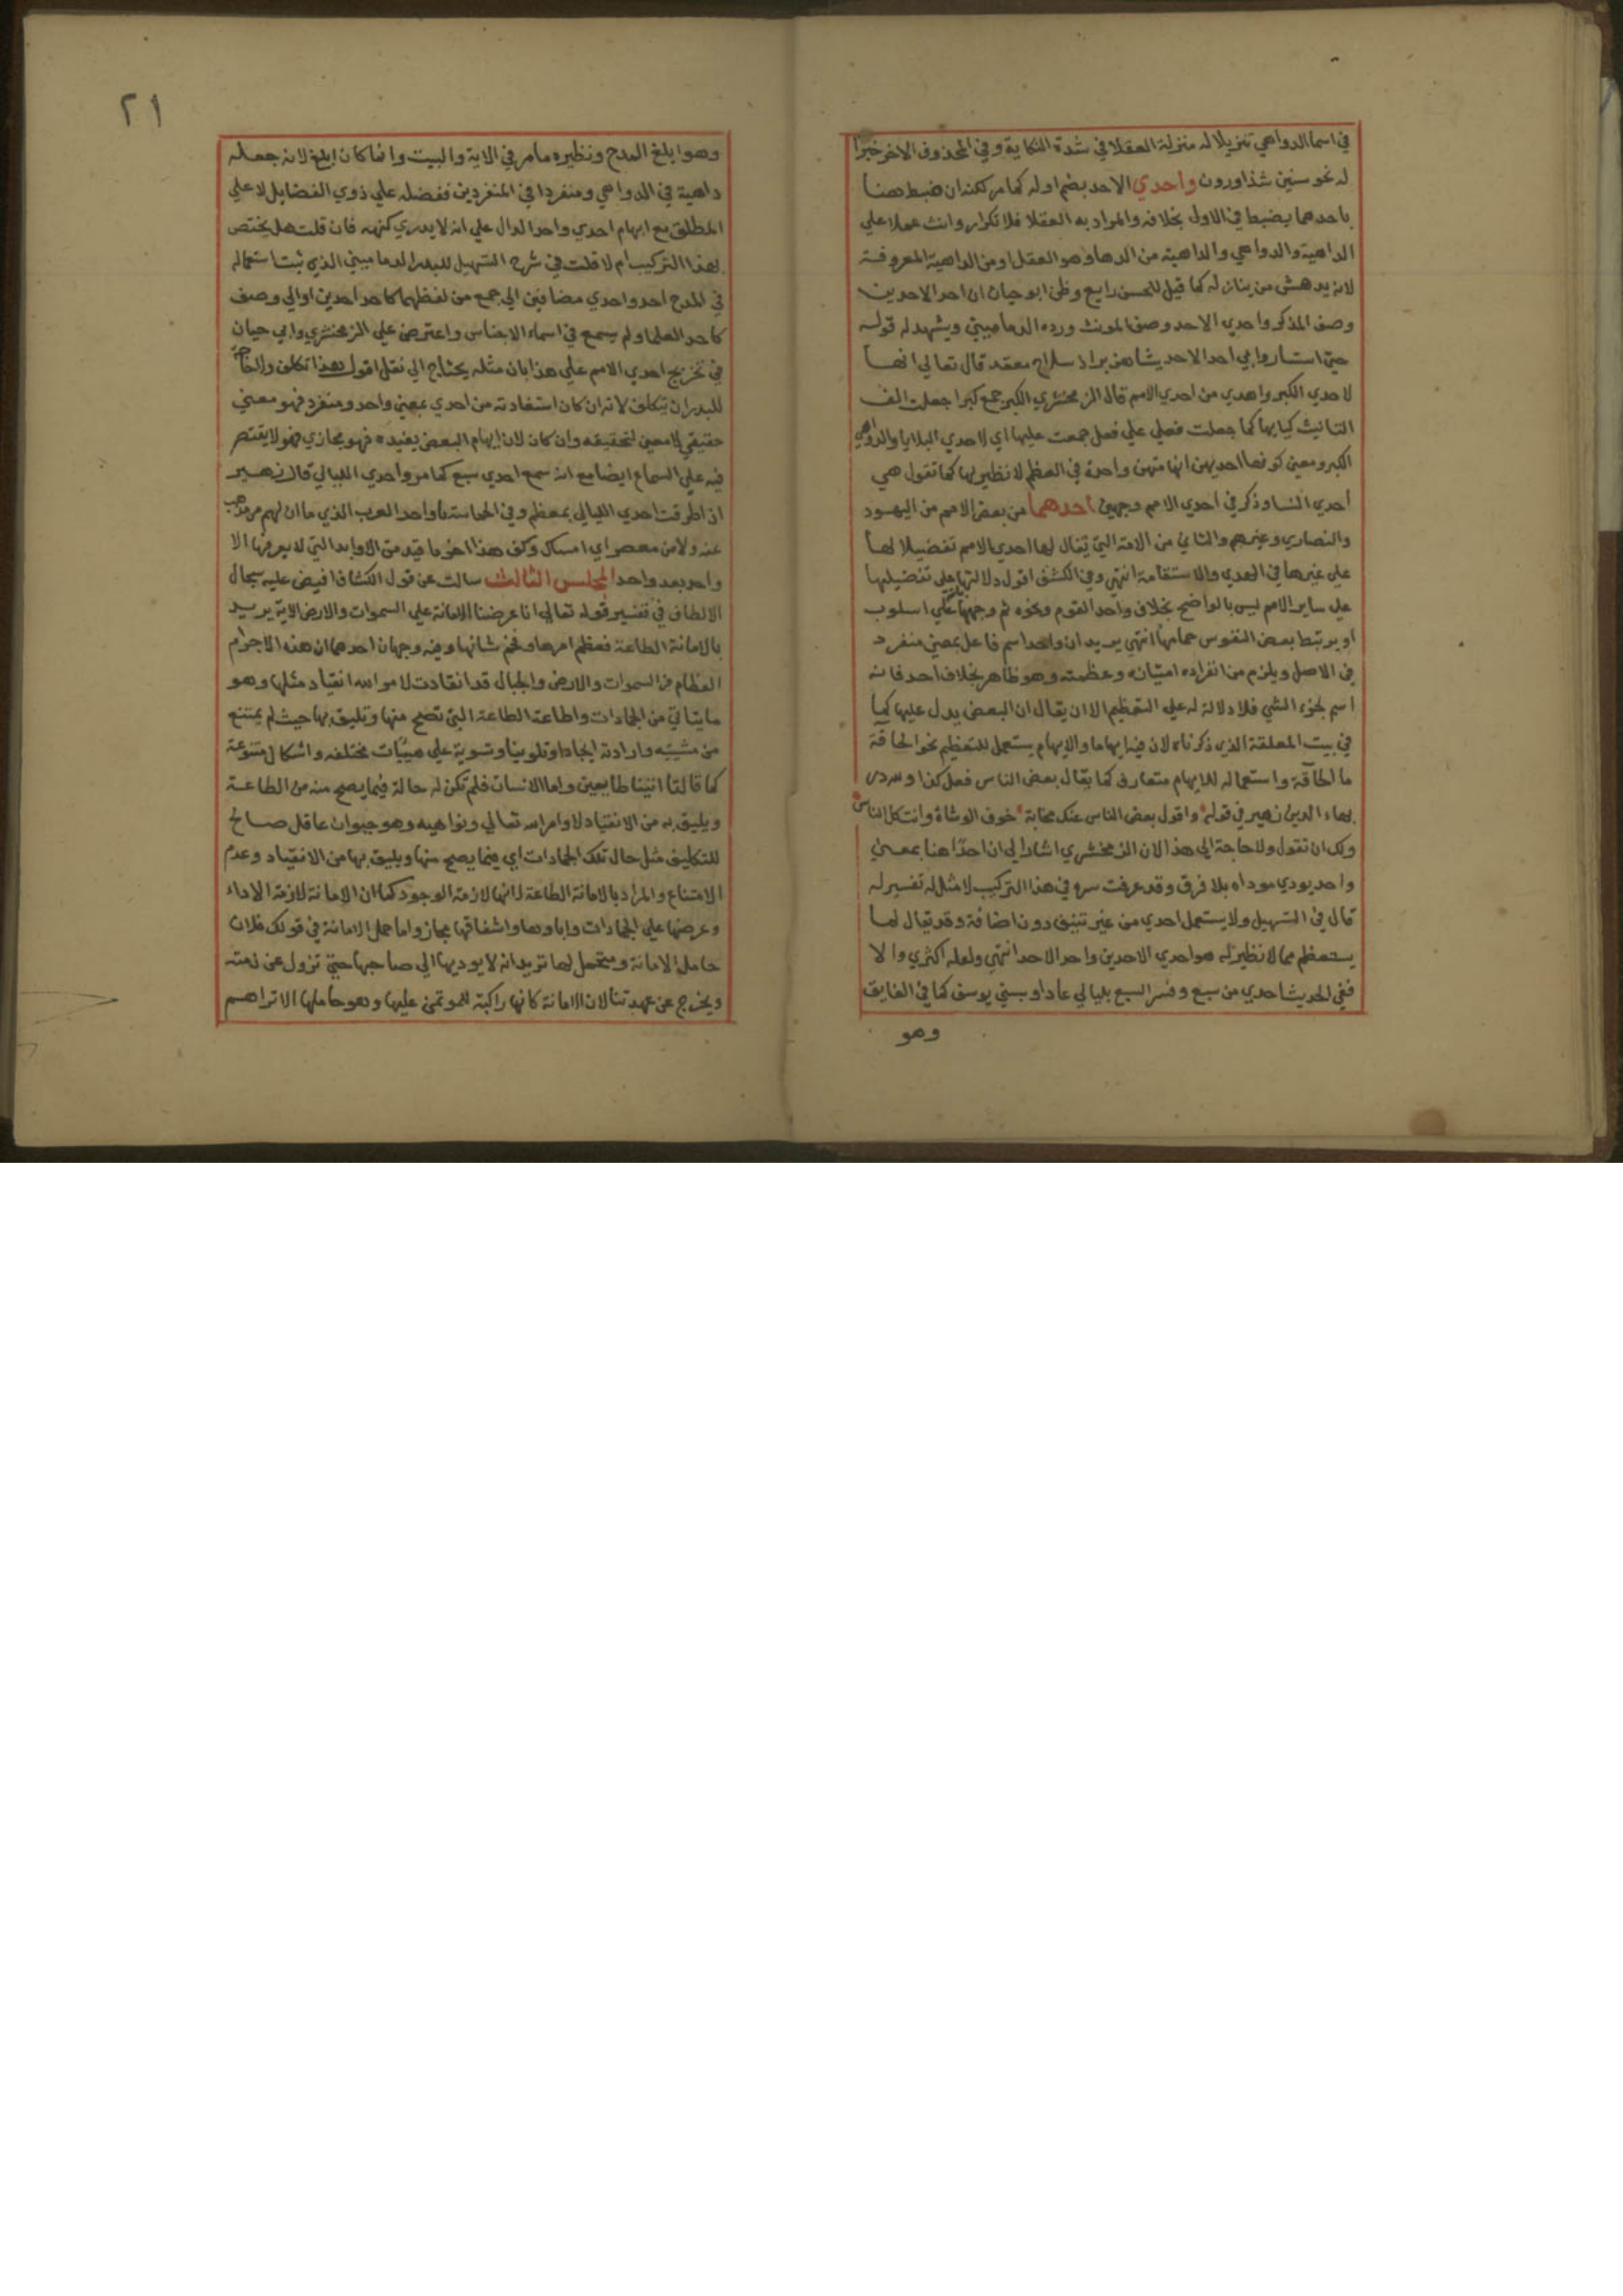 في اسما الدواهي تنزيلا له منزلة العقلا في شدة النكاية وفي المحذوف الاخر خبرا
له نحو سنين شذ اورون واحدي الاحد بضم اوله كما مر لكنه ان ضبط هنا
باحدهما يضبط في الاول بخلافه والمراد به العقلا فلا تكرار وانث حملا علي
الداهية والدواهي والداهية من الدهاء وهو العقل او من الداهية المعروفة
لانه يدهش من ينازله كما قيل للحسن رايع وظن ابو حيان ان احد الاحدين
وصف المذكر واحدي الاحد وصف المونث ورده الدماميني ويشهد له قوله
حتي استثاروا بي احد الاحد ليثا هزبرا ذا سلاح معتد قال تعالي انها
لاحدي الكبر واهدي من احدي الامم قال الزمخشري الكبر جمع كبرا جعلت الف
التانيث كتايها كما جعلت فعلي علي فعل جمعت عليها اي لاحدي البلايا والدواهي
الكبر ومعني كونها احديهن انها منهن واحدة في العظم لا نظير لها كما تقول هي
احدي النسا وذكر في احدي الامم وجهين احدهما من بعض الامم من اليهود
والنصاري وغيرهم والثاني من الامة التي يقال لها احدي الامم تفضيلا لها
علي غيرها في الهدي والاستقامة انتهي وفي الكشف اقول دلالتها علي تفضيلها
علي ساير الامم ليس بالواضح بخلاف واحد القوم ونحوه ثم وجهها علي اسلوب
او يرتبط بعض النفوس حمامها انتهي يريد ان واحد اسم فاعل بمعني منفرد
في الاصل ويلزم من انفراده امتيازه وعظمته وهو ظاهر بخلاف احد فانه
اسم لجزء الشي فلا دلالة له علي التعظيم الا ان يقال ان البعض يدل عليها كما
في بيت المعلقة الذي ذكرناه لان فيه ابهاما والابهام يستعمل للتعظيم نحو الحاقة
ما الحاقة واستعماله للابهام متعارف كما يقال بعض الناس فعل كذا ولله در
بهاء الدين زهير في قوله واقول بعض الناس عنك كناية خوف الوشاة وانت كل الناس
ولك ان تقول ولا حاجة الي هذا لان الزمخشري اشار الي ان احدا هنا بمعني
واحد يودي موداه بلا فرق وقد عرفت سره في هذا التركيب لا مثل له تفسير له
قال في التسهيل ولا يستعمل احدي من غير تنيف دون اضافة وقد يقال لما
يستعظم مما لا نظير له هو احدي الاحدين واحد الاحد انتهي ولعله اكثري والا
ففي الحديث احدي من سبع وفسر السبع بليالي عاد او بسني يوسف كما في الفايق
وهو
٢١
وهو ابلغ المدح ونظيره ما مر في الاية والبيت وانما كان ابلغ لانه جعله
داهية في الدواهي ومنفردا في المنفردين ففضله علي ذوي الفضايل لا علي
المطلق مع ابهام احدي واحد الدال علي انه لا يدري كنهه فان قلت هل يختص
بهذا التركيب ام لا قلت في شرح التسهيل للبدر الدماميني الذي ثبت استعماله
في المدح احد واحدي مضافين الي جمع من لفظهما كاحد احدين او الي وصف
كاحد العلما ولم يسمع في اسماء الاجناس واعترض علي الزمخشري وابي حيان
في تخريج احدي الامم علي هذا بان مثله يحتاج الي نقل اقول هذا تكلف
للبدر ان يتكلف لانه ان كان استفادته من احدي بمعني واحد ومنفرد فهو معني
حقيقي لا معني لتحقيقه وان كان لان ابهام البعض يفيده فهو مجازي فهو لا يقتصر
فيه علي السماع ايضا مع انه سمع احدي سبع كما مر واحدي الليالي قال زهير
اذ اطرقت احدي الليالي بمعظم وفي الحماسة يا واحد العرب الذي ما ان لهم من مذهب
عنه ولا من معصر اي امساك وكف هذا اخر ما قيد من الاوابد التي لا يعرفها الا
واحد بعد واحد المجلس الثالث سالت عن قول الكشاف افيض عليه سجال
الالطاف في تفسير قوله تعالي انا عرضنا الامانة علي السموات والارض الاية يريد
بالامانة الطاعة فعظم امرها وفخم شانها وفيه وجهان احدهما ان هذه الاجرام
العظام من السموات والارض والجبال قد انقادت لامر الله انقياد مثلها وهو
ما يتاتي من الجمادات واطاعة الطاعة التي تصح منها وتليق بها حيث لم يمتنع
من مشيته وارادته ايجادا وتكوينا وتسوية علي هييات مختلفه واشكال متنوعة
كما قالتا اتينا طايعين واما الانسان فلم تكن له حالة فيما يصح منه من الطاعة
ويليق به من الانقياد لاوامر الله تعالي ونواهيه وهو حيوان عاقل صالح
للتكليف مثل حال تلك الجمادات اي فيما يصح منها ويليق بها من الانقياد وعدم
الامتناع والمراد بالامانة الطاعة لانها لازمة الوجود كما ان الامانة لازمة الاداء
وعرضها علي الجمادات واباوها واشفاقها مجاز واما حمل الامانة في قولك فلان
حامل الامانة ومتحمل لها تريد انه لا يوديها الي صاحبها حتي تزول عن ذمته
ويخرج عن عهدتنا لان الامانة كانها راكبة للموتمن عليها وهو حاملها الا تراهم